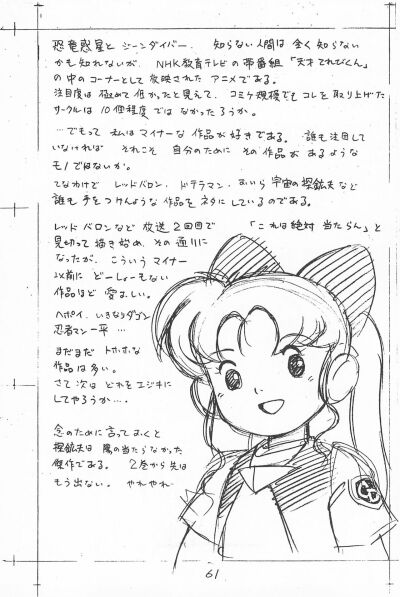 恐竜惑星と ジーンダイバー、 知らない人間は 全く知らない
かも知れないが、 NHK教育テレビの 帯番組 「天才てれびくん」
の中の コーナーとして 放映された アニメである。
注目度は 極めて 低かったと見えて、 コミケ規模でも コレを 取り上げた
サークルは 10個程度では なかったろうか。
…でもって 私はマイナーな 作品が好きである。 誰も注目して
いなければ それこそ 自分のために その作品が あるような
モノではないか。
てなわけで レッドバロン、 ドテラマン、 おいら宇宙の探鉱夫など
誰も 手をつけんような 作品を ネタにしているのである。
レッドバロンなど 放送2回目で 「これは絶対 当たらん」と
見切って描き始め、 その通りに
なったが、 こういう マイナー
以前に どーしょーもない
作品ほど 愛よしい。
ヘポイ、 いきなりダゴン
忍者マン一平 …
まだまだ トホホな
作品は多い。
さて次は どれを エジキに
してやろうか…。
念のために言っておくと
探鉱夫は 陽の当たらなかった
傑作である。 2巻から先は
もう出ない。 やれやれ
61